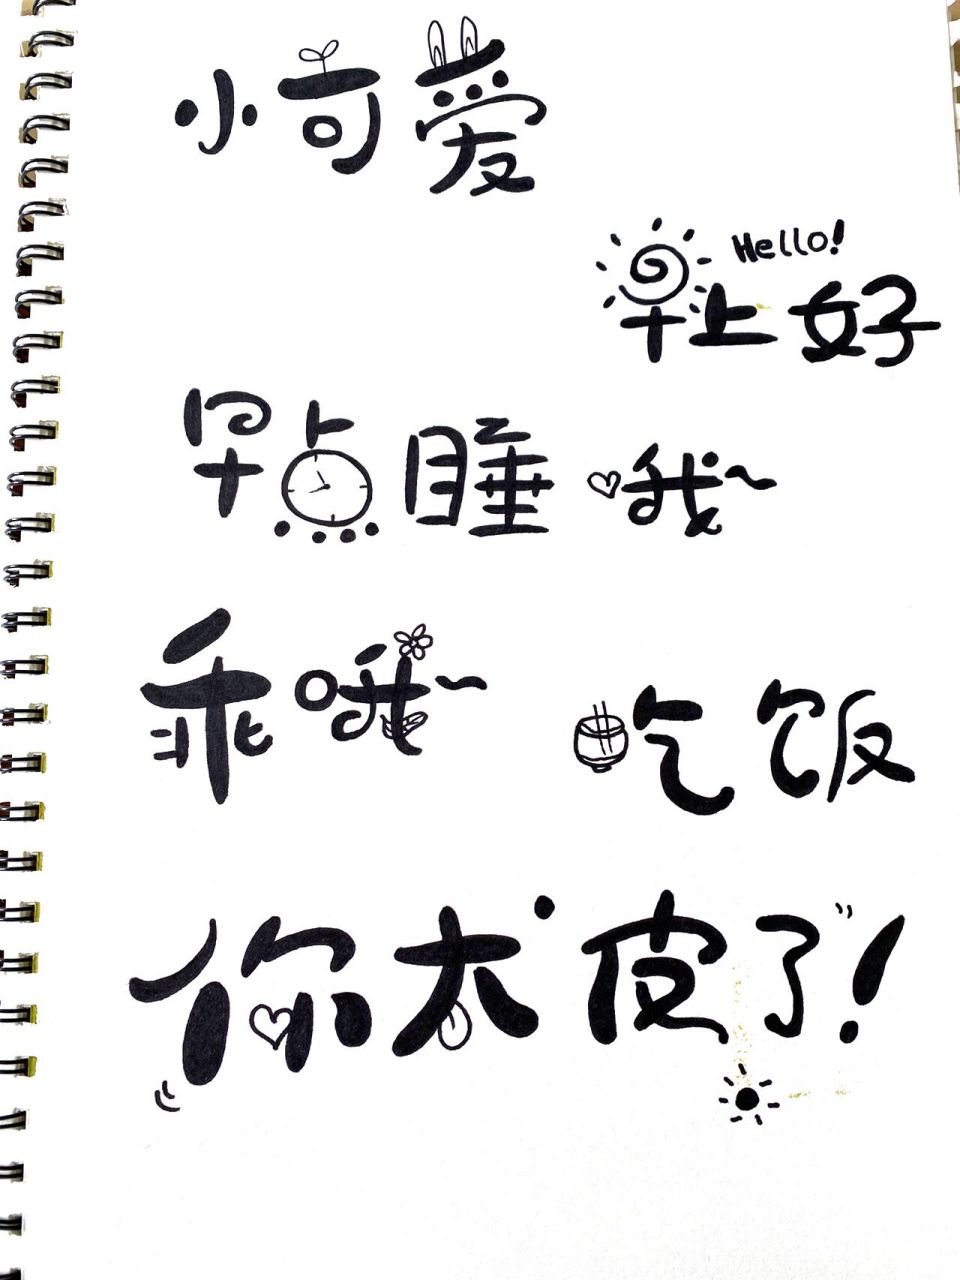 小可爱
Hello!
早上好
早点睡哦~
乖哦~
吃饭
你太皮了!